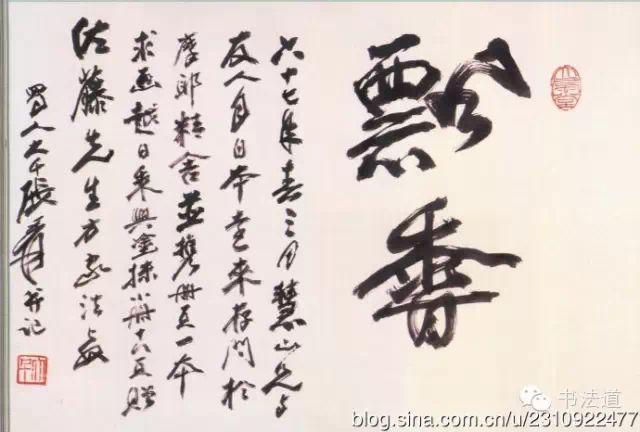 飄香
六十七年春三月慧山兄与
友人自日本遠来存問於
摩耶精舍並携册頁一本
求画越日乘興塗抹小册十六頁贈
佐藤先生方家法教
蜀人大千張爰并記
书法道
blog.sina.com.cn/u/2310922477